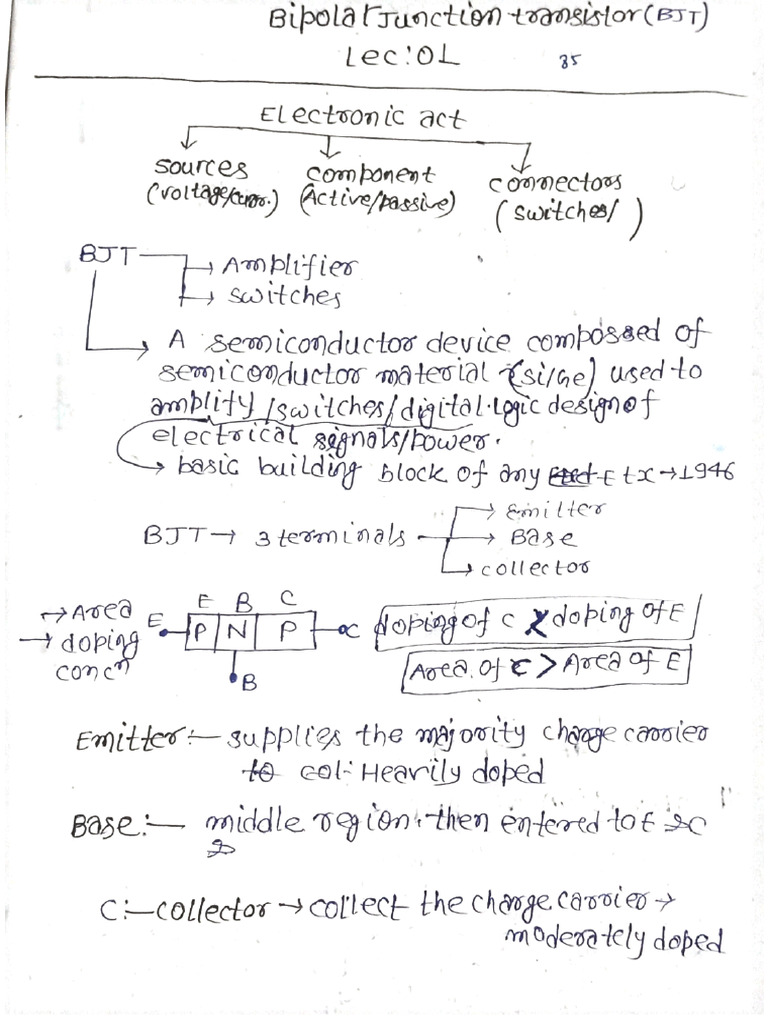 Bipolar Junction transistor (BJT)
Lec:01 35
Electronic act
sources component connectors
(voltage/curr.) (Active/passive) (switches/ )
BJT → Amplifier
→ switches
→ A semiconductor device composed of
semiconductor material (si/Ge) used to
amplify/switches/digital logic design of
electrical signals/power.
→ basic building block of any Etx→1946
BJT → 3 terminals → Emitter
→ Base
→ collector
E B C
→ Area E P N P C doping of C < doping of E
→ doping
concn B Area of C > Area of E
Emitter:— supplies the majority charge carrier
to col- Heavily doped
Base:— middle region. then entered to E &C
C:—collector → collect the charge carrier →
moderately doped